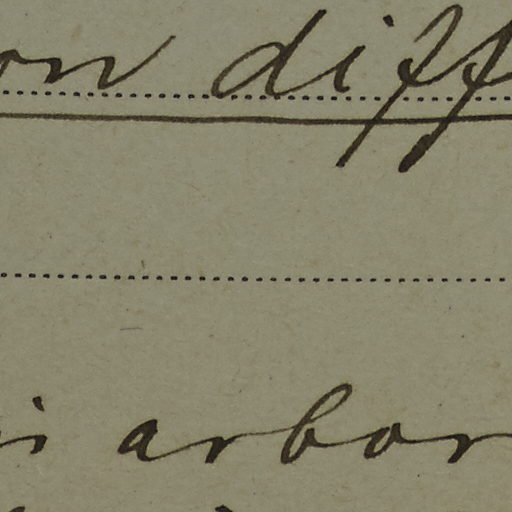 on diff
i arbor